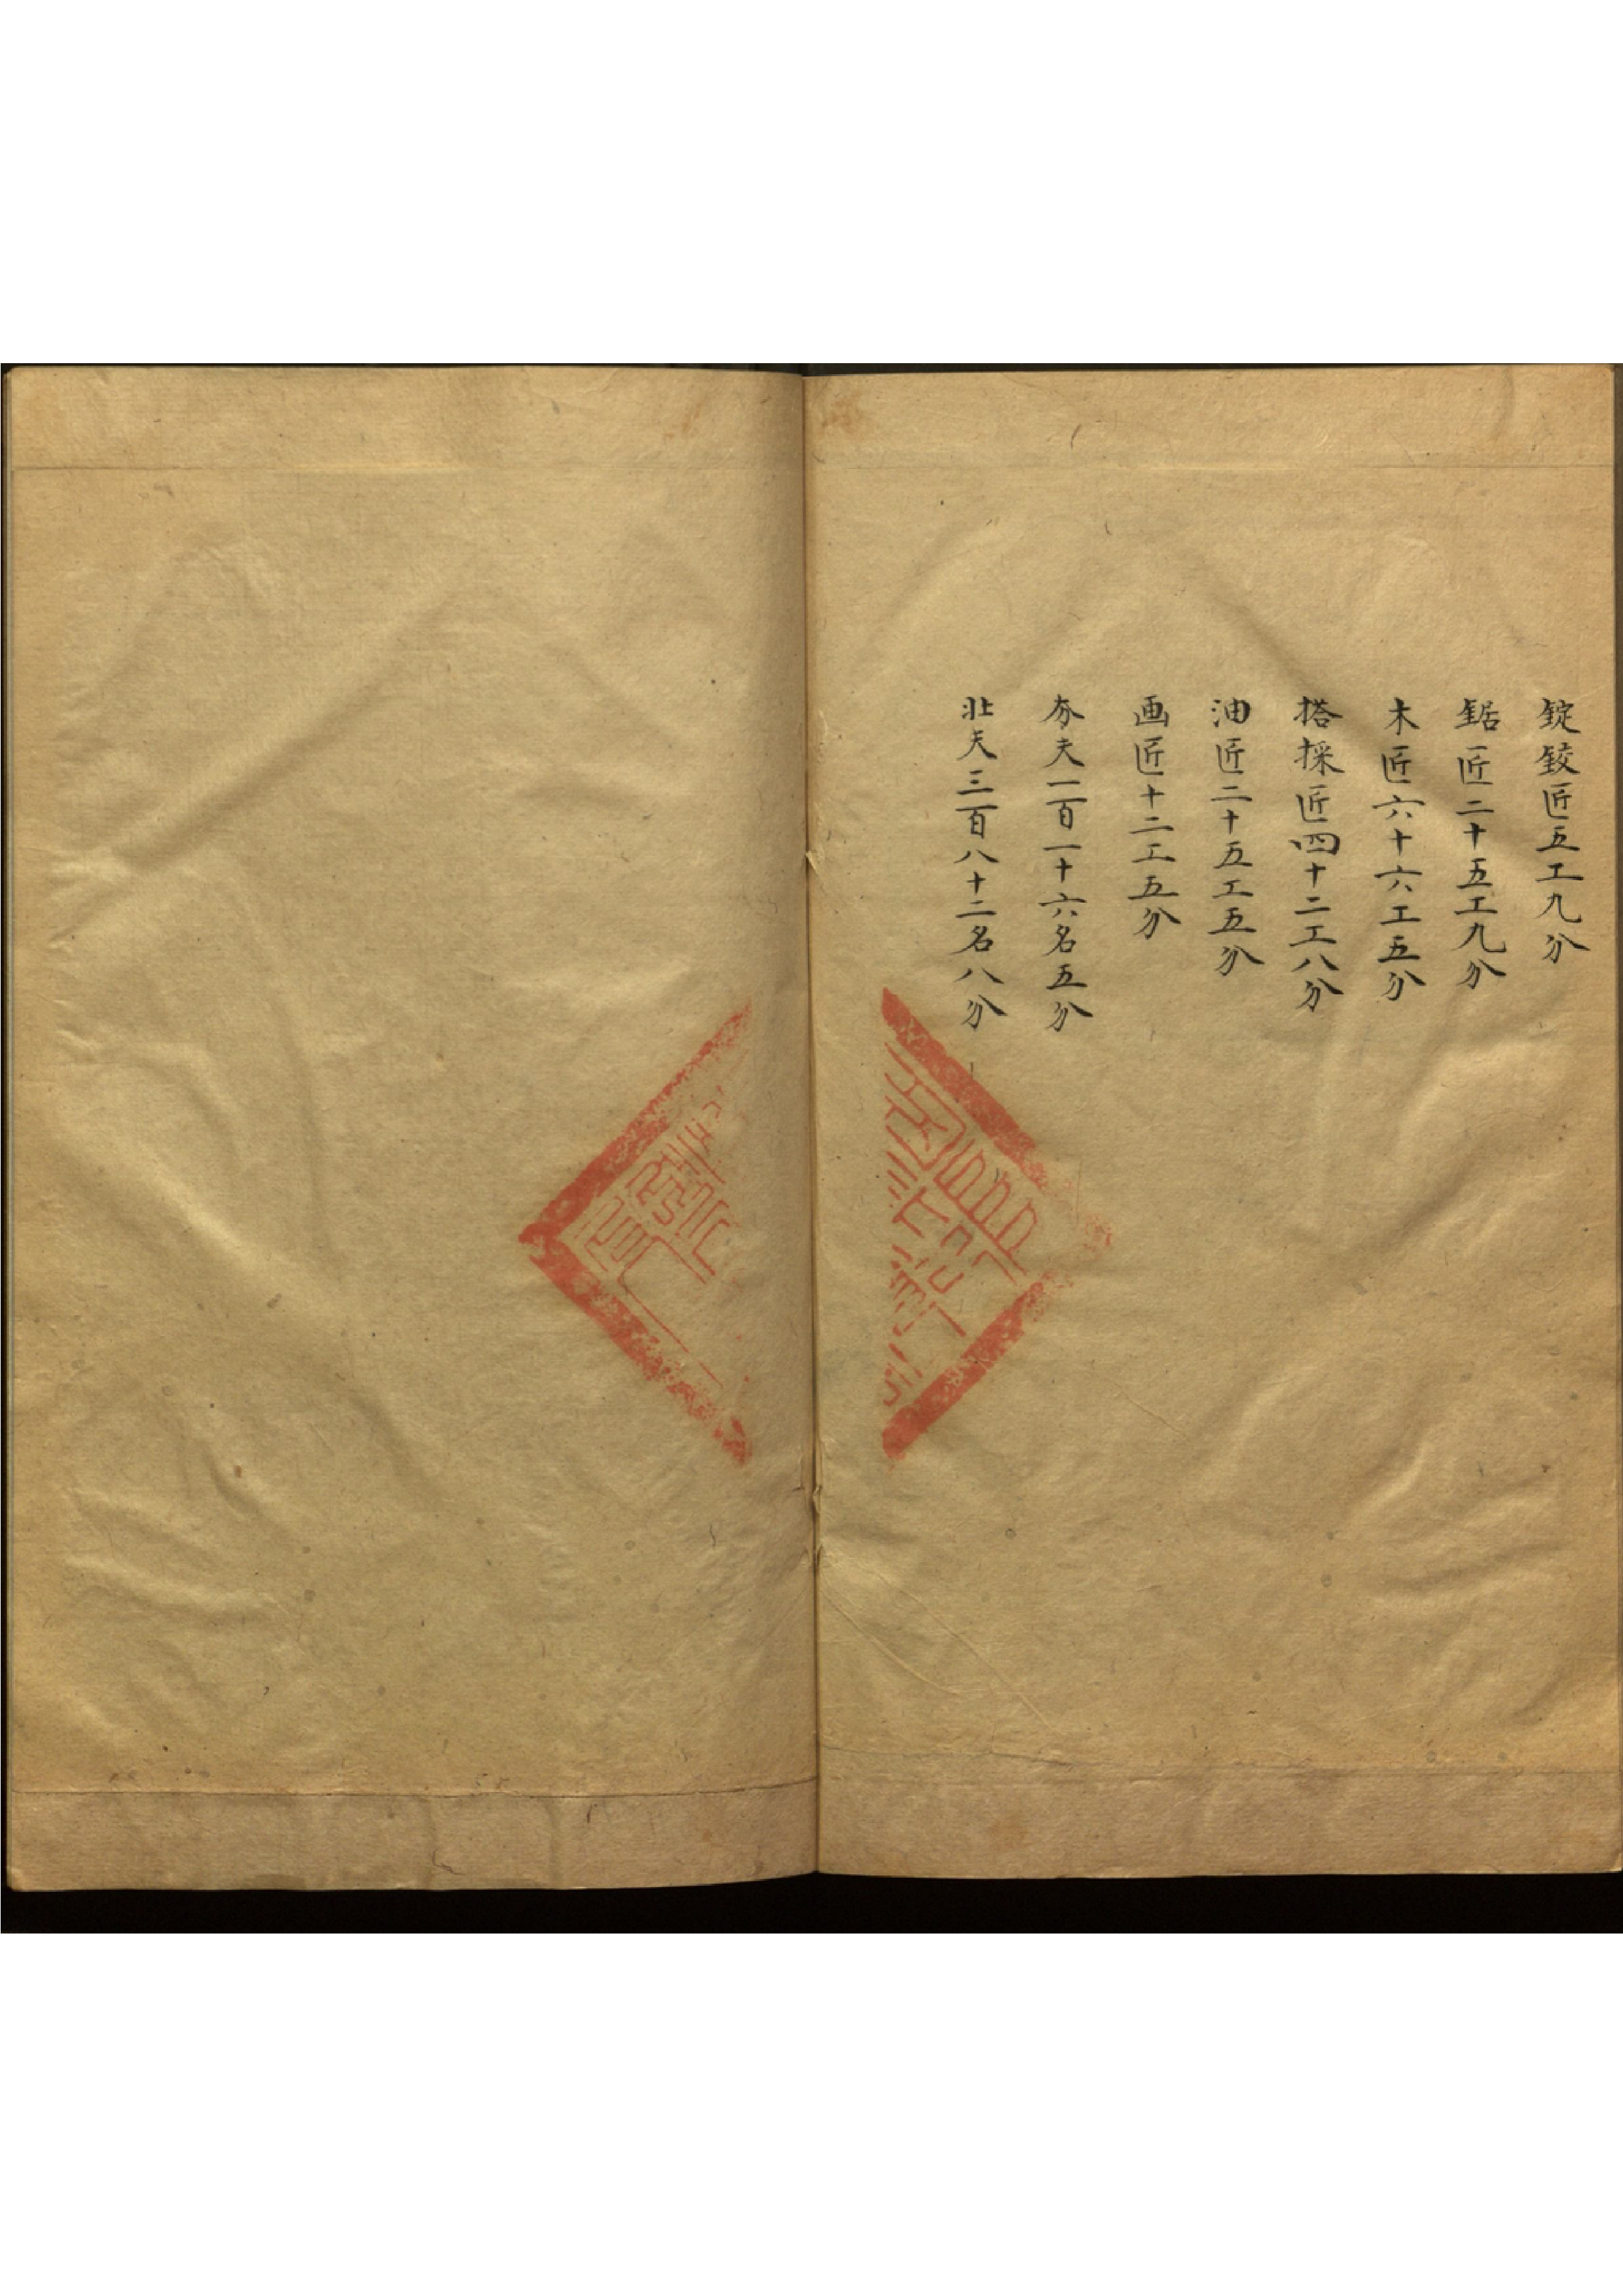 錠鉸匠五工九分
鋸匠二十五工九分
木匠六十六工五分
搭採匠四十二工八分
油匠二十五工五分
画匠十二工五分
夯夫一百一十六名五分
壮夫三百八十二名八分